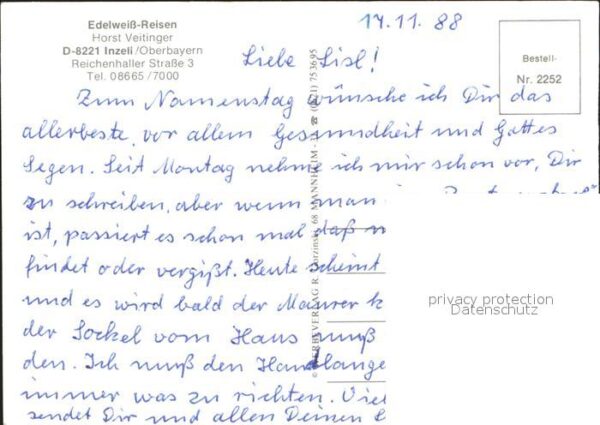 Edelweiß-Reisen
Horst Veitinger
D-8221 Inzell/Oberbayern
Reichenhaller Straße 3
Tel. 08665/7000
17.11.88
Bestell-
Nr. 2252
Liebe Lisl!
Zum Namenstag wünsche ich Dir das
allerbeste, vor allem Gesundheit und Gottes
Segen. Seit Montag nehme ich mir schon vor, Dir
zu schreiben, aber wenn man
ist, passiert es schon mal daß
findet oder vergißt. Heute scheint
und es wird bald der Maurer k
der Sockel vom Haus muß
den. Ich muß den Handlange
immer was zu richten. Viel
sendet Dir und allen Deinen
MANNHEIM
privacy protection
Datenschutz